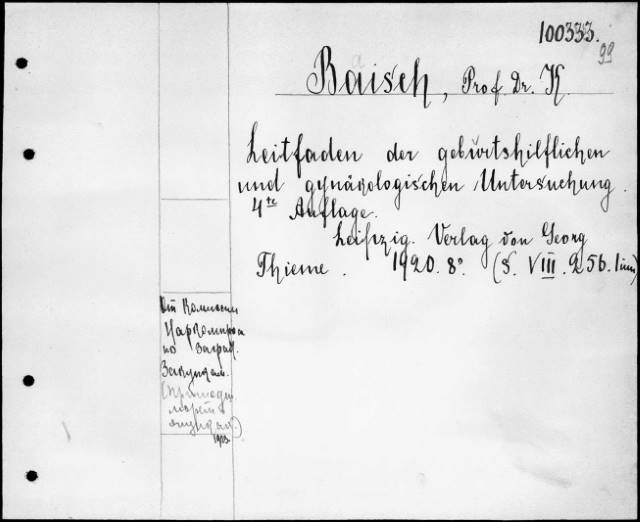 100333.
99
Baisch, Prof. Dr. K.
Leitfaden der geburtshilflichen
und gynäkologischen Untersuchung.
4te Auflage.
Leipzig. Verlag von Georg
Thieme. 1920. 8° (S. VIII. 256. 1 im)
От Комиссии
Наркомпроса
по загран.
Закупкам.